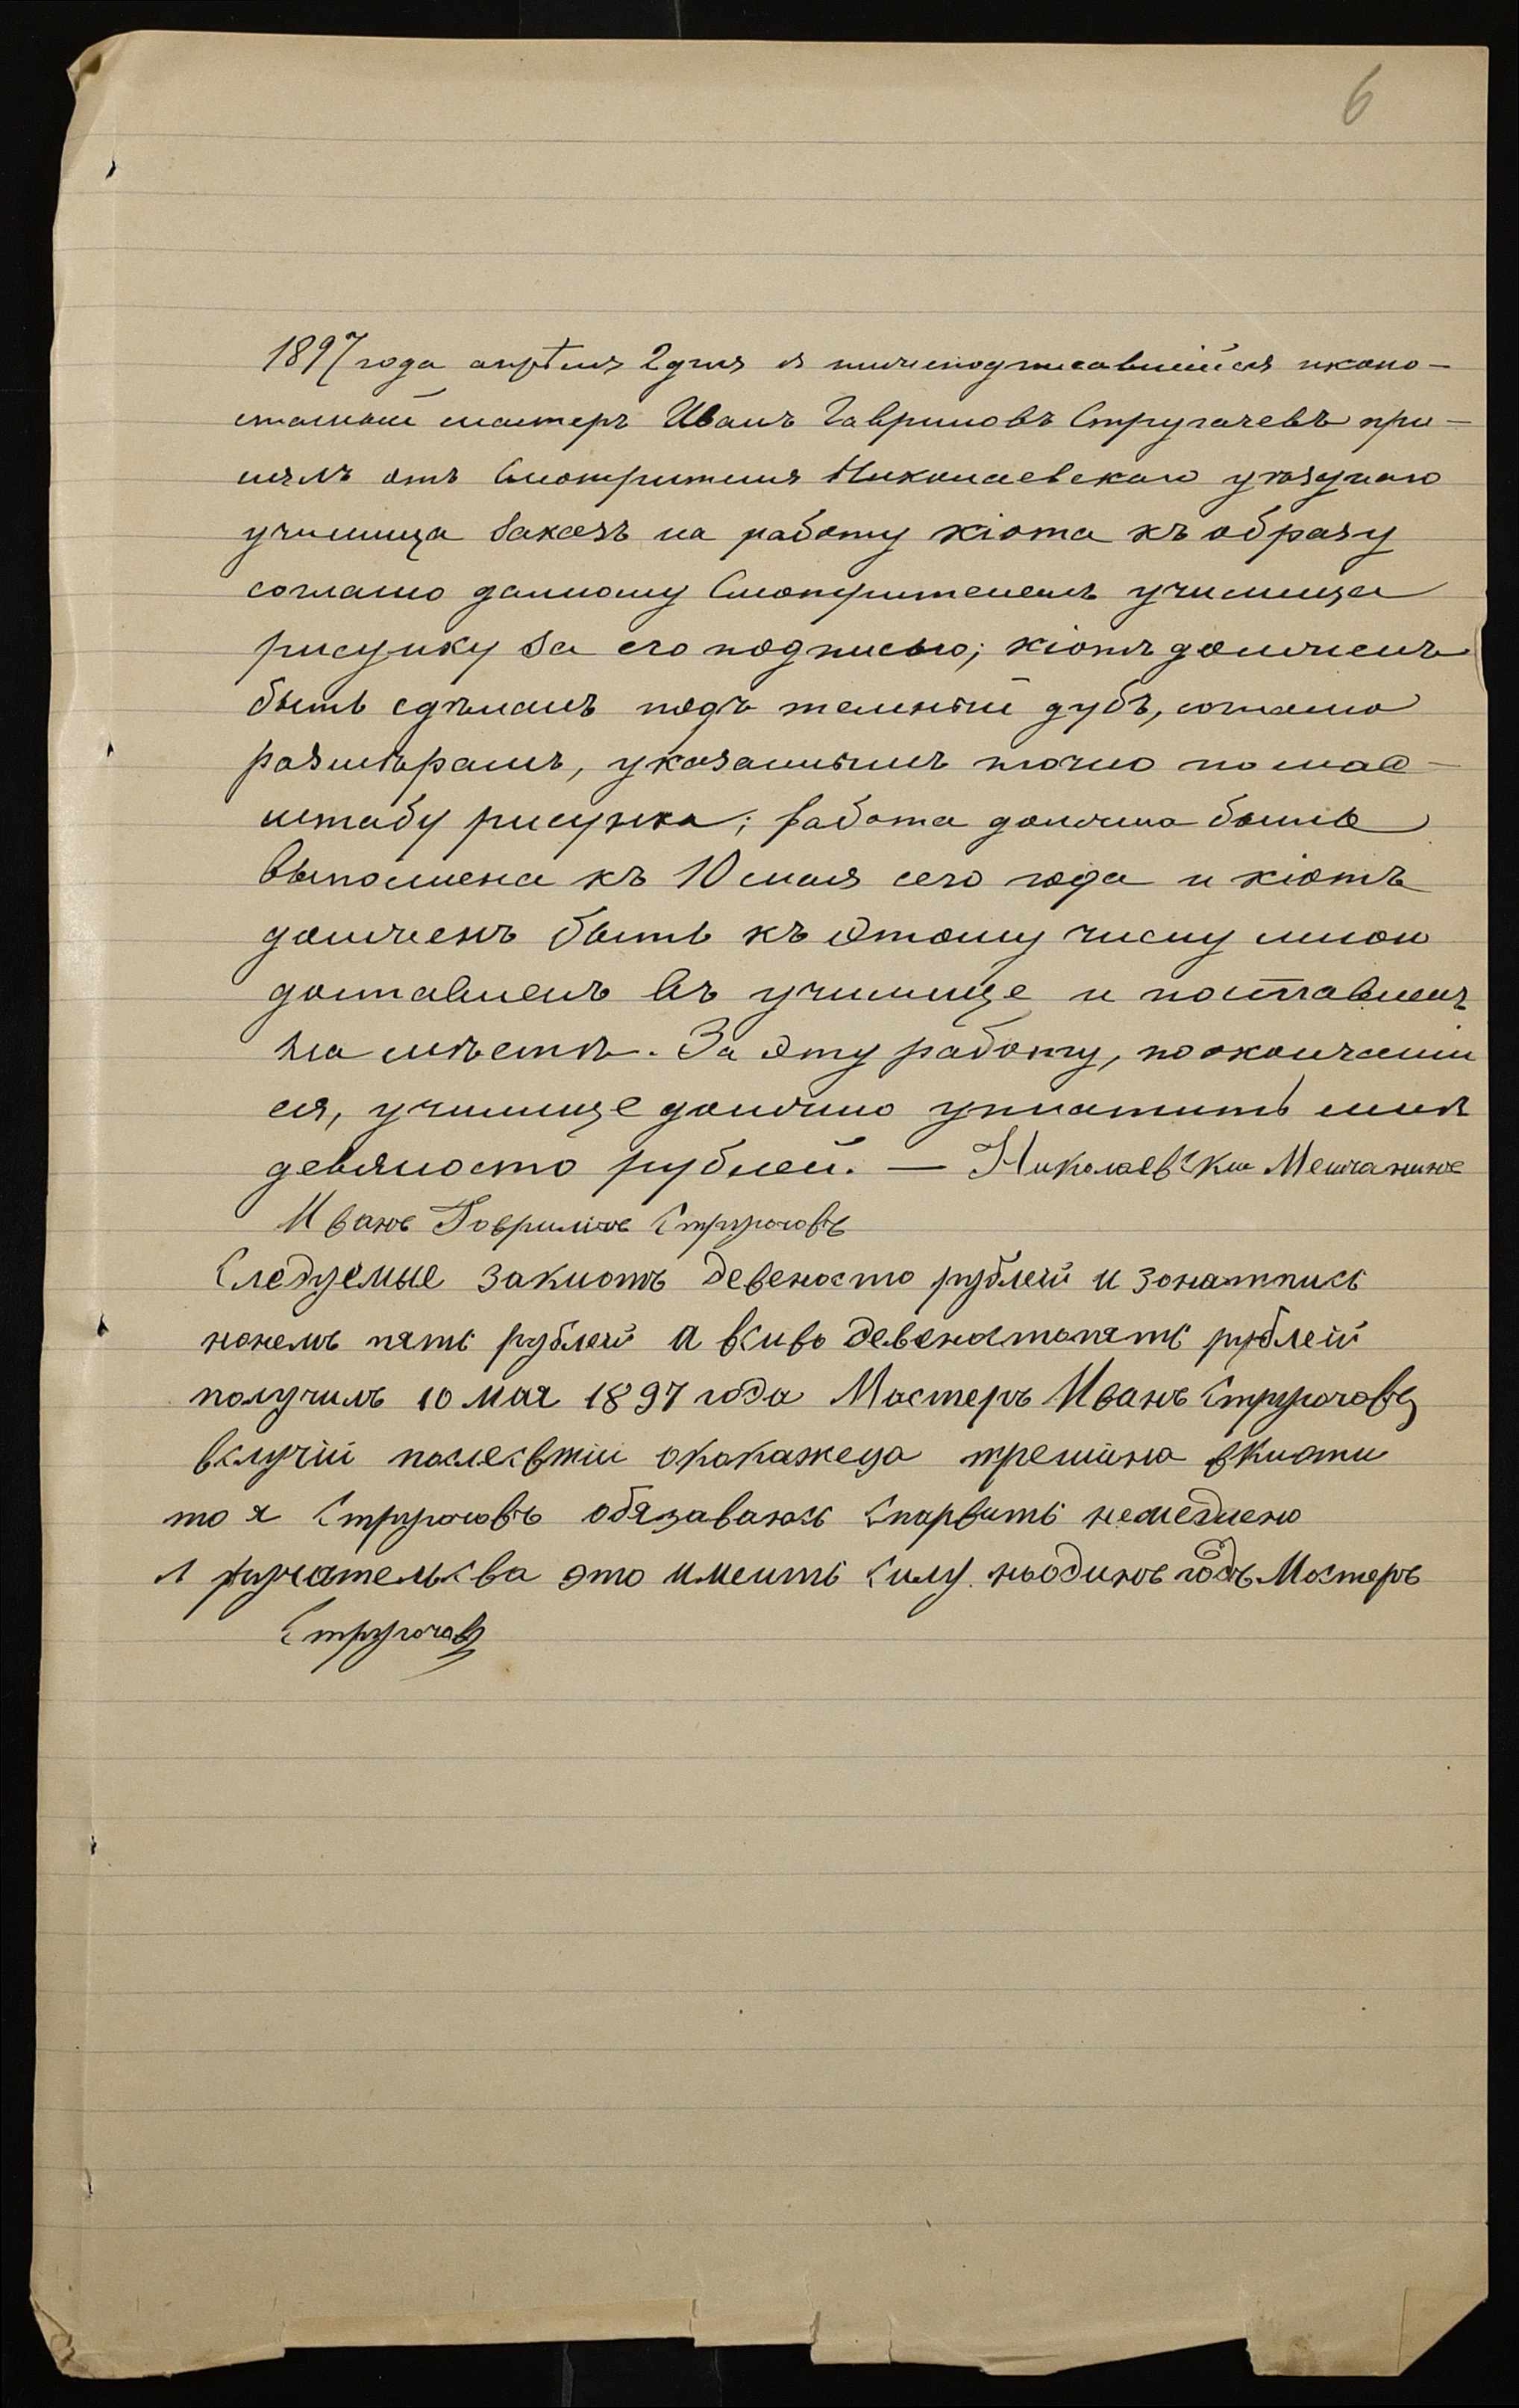 6
1897 года апрѣля 2 дня я нижеподписавшійся иконо-
стасный мастеръ Иванъ Гавриловъ Стругачевъ при-
нялъ отъ Смотрителя Николаевскаго уѣзднаго
училища заказъ на работу кіота къ образу
согласно данному Смотрителемъ училища
рисунку за его подписью; кіотъ долженъ
быть сдѣланъ подъ темный дубъ, согласно
размѣрамъ, указаннымъ точно по мас-
штабу рисунка; работа должна быть
выполнена къ 10 мая сего года и кіотъ
долженъ быть къ этому числу мною
доставленъ въ училище и поставленъ
на мѣстѣ. За эту работу, по окончаніи
ея, училище должно уплатить мнѣ
девяносто рублей. — Николаевски Мешчанинъ
ИванъГовриливъ Стругочовъ
Следуемые закиотъ девеносто рублей и зонатпись
нонемъ пять рублей а всиво девеностопять рублей
получилъ 10 мая 1897 года Мостеръ Иванъ Стругочовъ
вслучіи послесвтіи ококажеца трешина вкиоти
то я Стругочовъ обязаваюсь Спарвить немедлено
ручательсва это имеить силу ноодинъ годъ Мостеръ
Стругочовъ